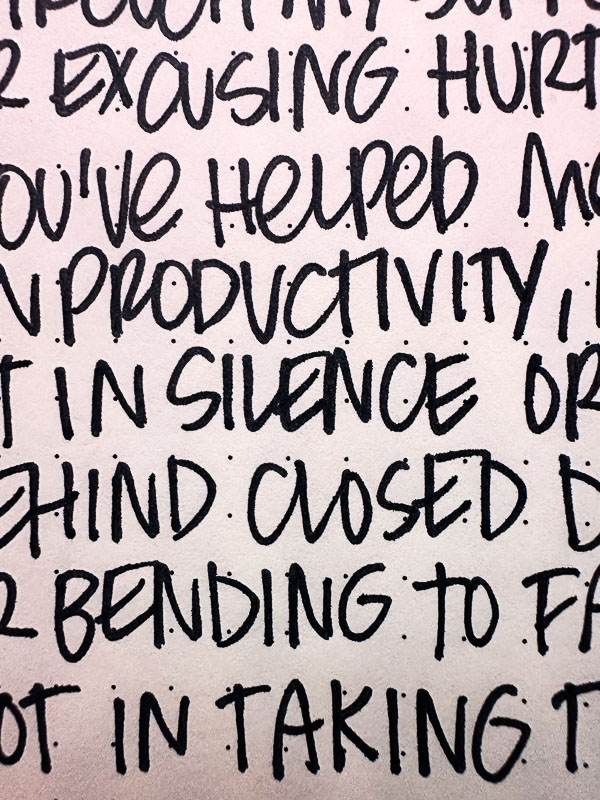 THROUGH MY
R EXCUSING HURT
OU'VE HELPED ME
N PRODUCTIVITY,
T IN SILENCE OR
EHIND CLOSED D
R BENDING TO FA
OT IN TAKING T